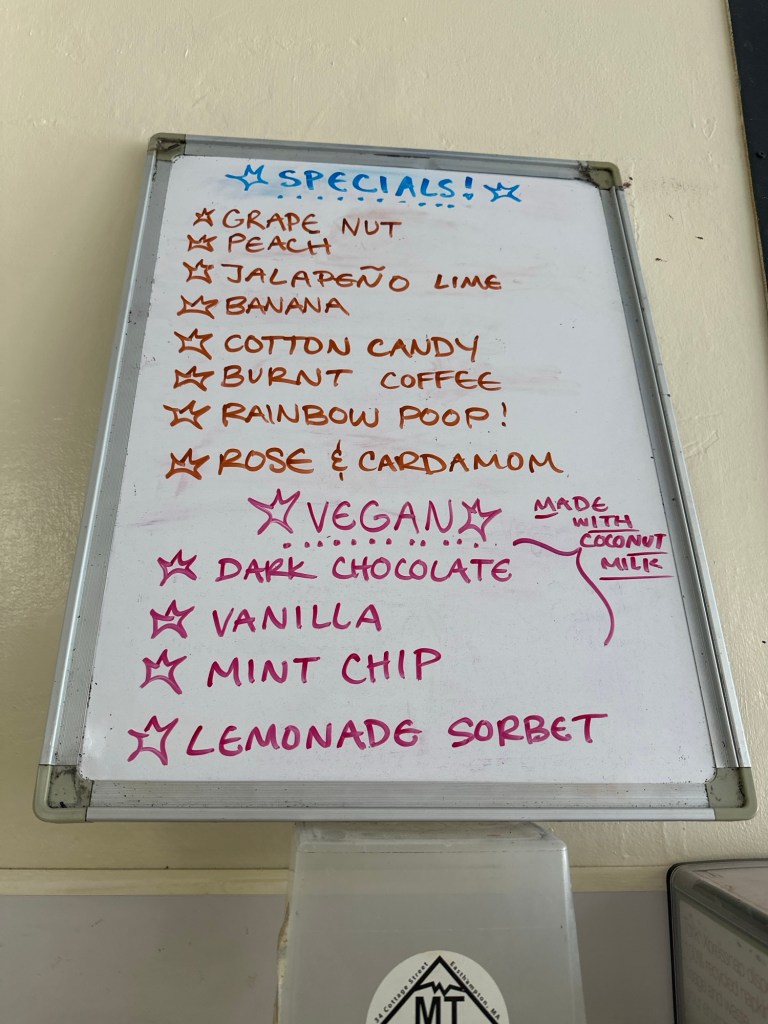 SPECIALS!
GRAPE NUT
PEACH
JALAPEÑO LIME
BANANA
COTTON CANDY
BURNT COFFEE
RAINBOW POOP!
ROSE & CARDAMOM
VEGAN
MADE
WITH
COCONUT
MILK
DARK CHOCOLATE
VANILLA
MINT CHIP
LEMONADE SORBET
34 Cottage Street
Easthampton, MA
MT